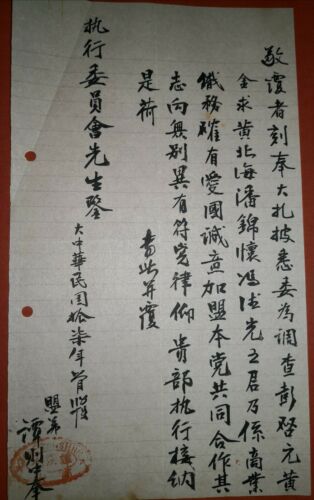 敬覆者刻奉大扎披悉委為調查彭啓元黃
金求黃北海潘錦懷馮法光之君乃係商業
職務確有愛國誠意加盟本党共同合作其
志向無別異有符党律仰 貴部执行接納
是荷
耑此并覆
执行委員會先生鑒
大中華民國拾柒年
盟弟
譚 奉